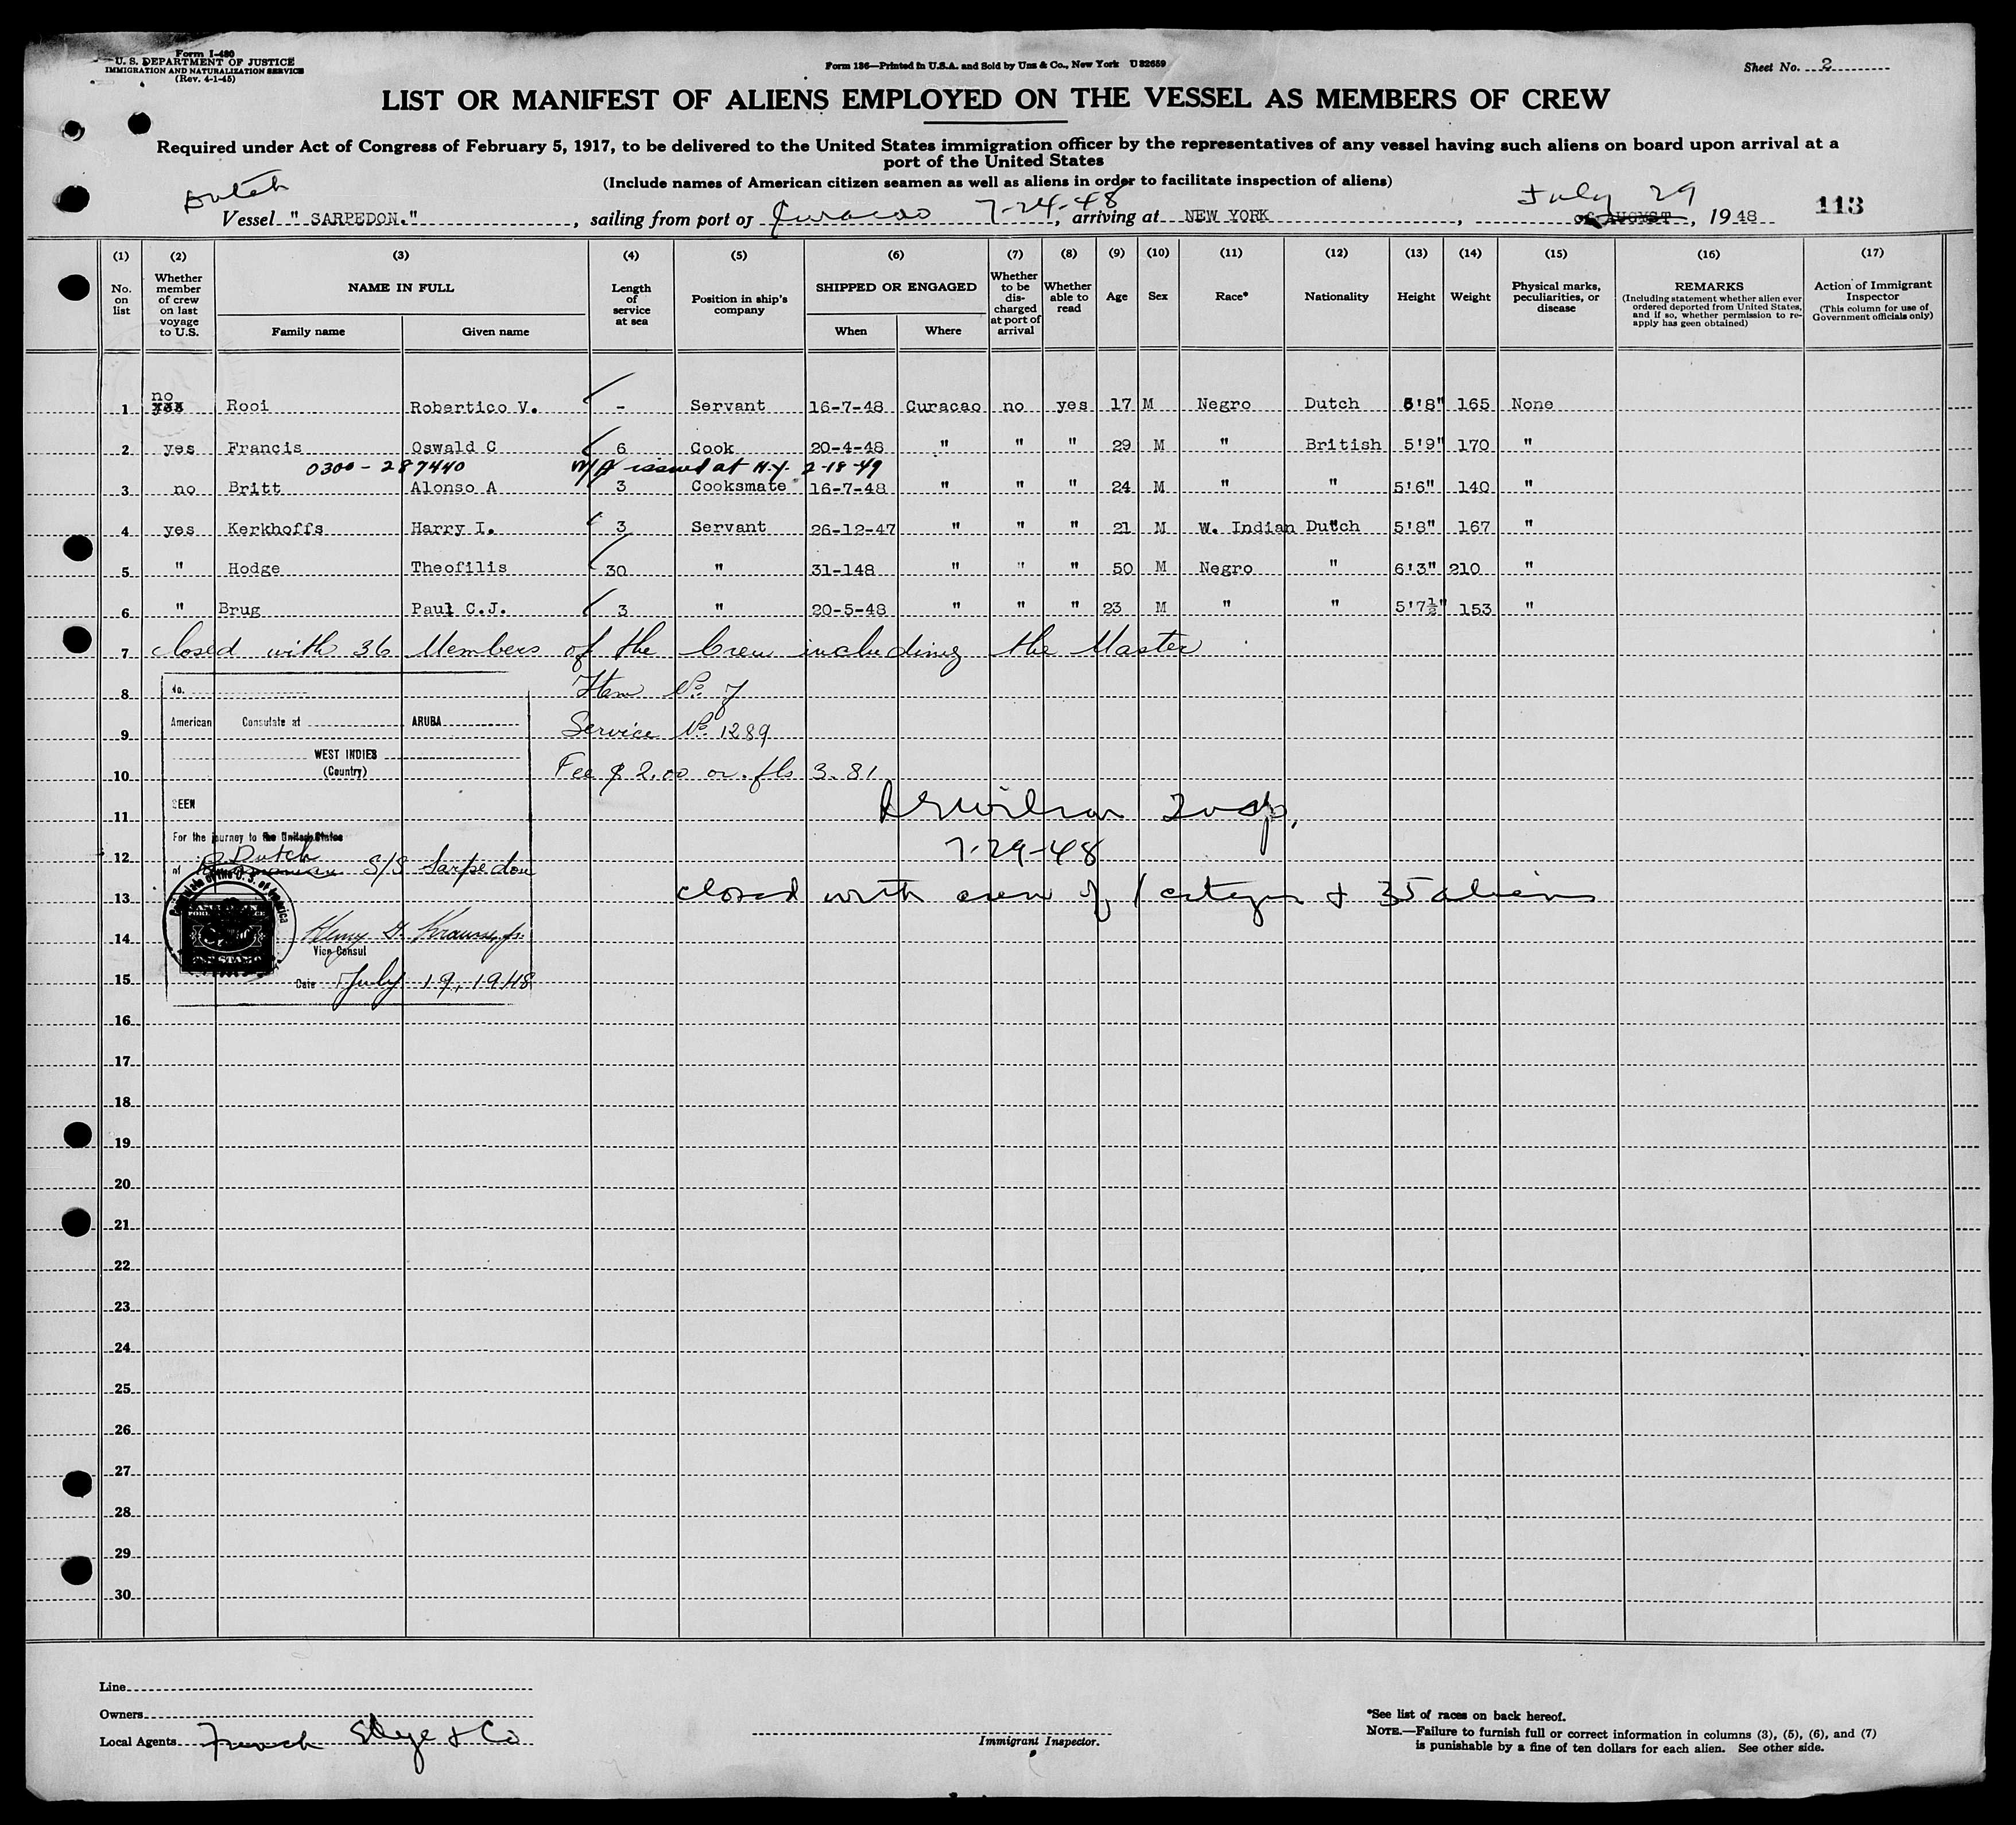 Form I-480
U. S. DEPARTMENT OF JUSTICE
IMMIGRATION AND NATURALIZATION SERVICE
(Rev. 4-1-45)
Form 136—Printed in U.S.A. and Sold by Unz & Co., New York U 32659
Sheet No. 2
LIST OR MANIFEST OF ALIENS EMPLOYED ON THE VESSEL AS MEMBERS OF CREW
Required under Act of Congress of February 5, 1917, to be delivered to the United States immigration officer by the representatives of any vessel having such aliens on board upon arrival at a
port of the United States
(Include names of American citizen seamen as well as aliens in order to facilitate inspection of aliens)
Dutch
July 29
Vessel " SARPEDON." , sailing from port of Curacao 7-24-48, arriving at NEW YORK , of AUGUST , 1948
113
(1) (2) (3) (4) (5) (6) (7) (8) (9) (10) (11) (12) (13) (14) (15) (16) (17)
No. on list
Whether member of crew on last voyage to U.S.
NAME IN FULL
Family name
Given name
Length of service at sea
Position in ship's company
SHIPPED OR ENGAGED
When
Where
Whether to be discharged at port of arrival
Whether able to read
Age
Sex
Race*
Nationality
Height
Weight
Physical marks, peculiarities, or disease
REMARKS
(Including statement whether alien ever ordered deported from United States, and if so, whether permission to re-apply has geen obtained)
Action of Immigrant Inspector
(This column for use of Government officials only)
no
1 yes Rooi Robertico V. - Servant 16-7-48 Curacao no yes 17 M Negro Dutch 5'8" 165 None
2 yes Francis Oswald C 6 Cook 20-4-48 " " " 29 M " British 5'9" 170 "
0300-287440 issued at N.Y. 2-18-49
3 no Britt Alonso A 3 Cooksmate 16-7-48 " " " 24 M " " 5'6" 140 "
4 yes Kerkhoffs Harry I. 3 Servant 26-12-47 " " " 21 M W. Indian Dutch 5'8" 167 "
5 " Hodge Theofilis 30 " 31-148 " " " 50 M Negro " 6'3" 210 "
6 " Brug Paul C.J. 3 " 20-5-48 " " " 23 M " " 5'7½" 153 "
7 Closed with 36 Members of the Crew including the Master
8 No. Item No. 7
9 American Consulate at ARUBA Service No. 1289
WEST INDIES
10 (Country) Fee $ 2.00 or fls 3.81
SEEN
11 Insp.
For the journey to the United States
Dutch
12 of S/S Sarpedon 7-29-48
Consulate of the U. S. of America
13 closed with crew of 1 citizen & 35 aliens
14 Henry G. Krausse, Jr.
Vice Consul
15 Date July 19, 1948
16
17
18
19
20
21
22
23
24
25
26
27
28
29
30
Line
Owners
Local Agents Funch Edye & Co
Immigrant Inspector.
*See list of races on back hereof.
NOTE.—Failure to furnish full or correct information in columns (3), (5), (6), and (7)
is punishable by a fine of ten dollars for each alien. See other side.